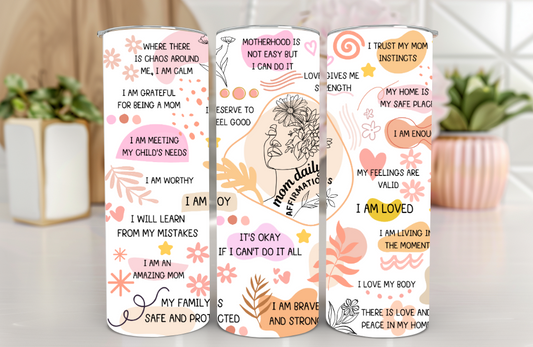 WHERE THERE
IS CHAOS AROUND
ME, I AM CALM
I AM GRATEFUL
FOR BEING A MOM
I AM MEETING
MY CHILD'S NEEDS
I AM WORTHY
I AM
I WILL LEARN
FROM MY MISTAKES
I AM AN
AMAZING MOM
MY FAMILY IS
SAFE AND PROTECTED
MOTHERHOOD IS
NOT EASY BUT
I CAN DO IT
LOVE GIVES ME
STRENGTH
DESERVE TO
FEEL GOOD
mom daily
AFFIRMATIONS
JOY
IT'S OKAY
IF I CAN'T DO IT ALL
I AM BRAVE
AND STRONG
I TRUST MY MOM
INSTINCTS
MY HOME IS
MY SAFE PLACE
I AM ENOUGH
MY FEELINGS ARE
VALID
I AM LOVED
I AM LIVING IN
THE MOMENT
I LOVE MY BODY
THERE IS LOVE AND
PEACE IN MY HOME